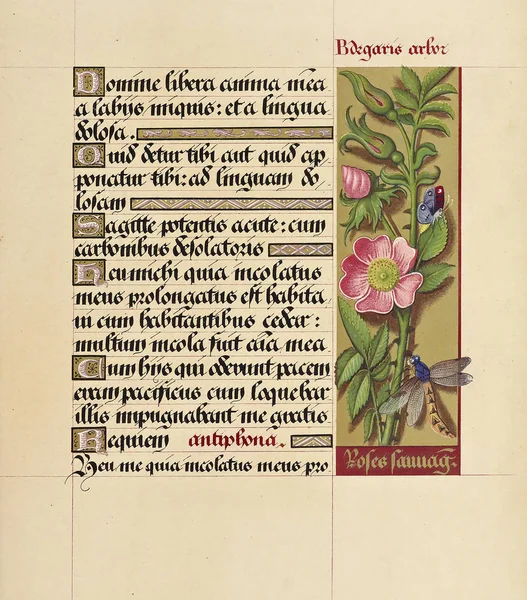 Bdegaris arbor
Domine libera animā meā
a labijs iniquis: et a lingua
dolosa.
Quid detur tibi aut quid ap
ponatur tibi: ad linguam do
losam
Sagitte potentis acute: cum
carbonibus desolatoris
Heu michi quia incolatus
meus prolongatus est habita
ui cum habitantibus cedar:
multum incola fuit aīa mea
Cum hijs qui oderunt pacem
eram pacificus cum loquebar
illis impugnabant me gratis
Requiem antiphona.
Heu me quia incolatus meus pro
Roses sauuag.